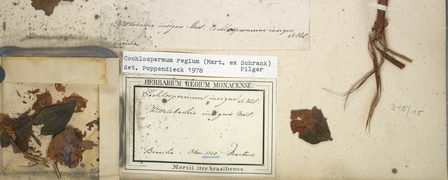 Wittelsbachia insignis Mart. Cochlospermum insigne
St. Hil.
Cochlospermum regium (Mart. ex Schrank)
det. Poppendieck 1978 Pilger
HERBARIUM REGIUM MONACENSE.
Cochlospermum insigne St. Hil.
Wittelsbachia insignis Mart.
Martius
Martii iter brasiliense.